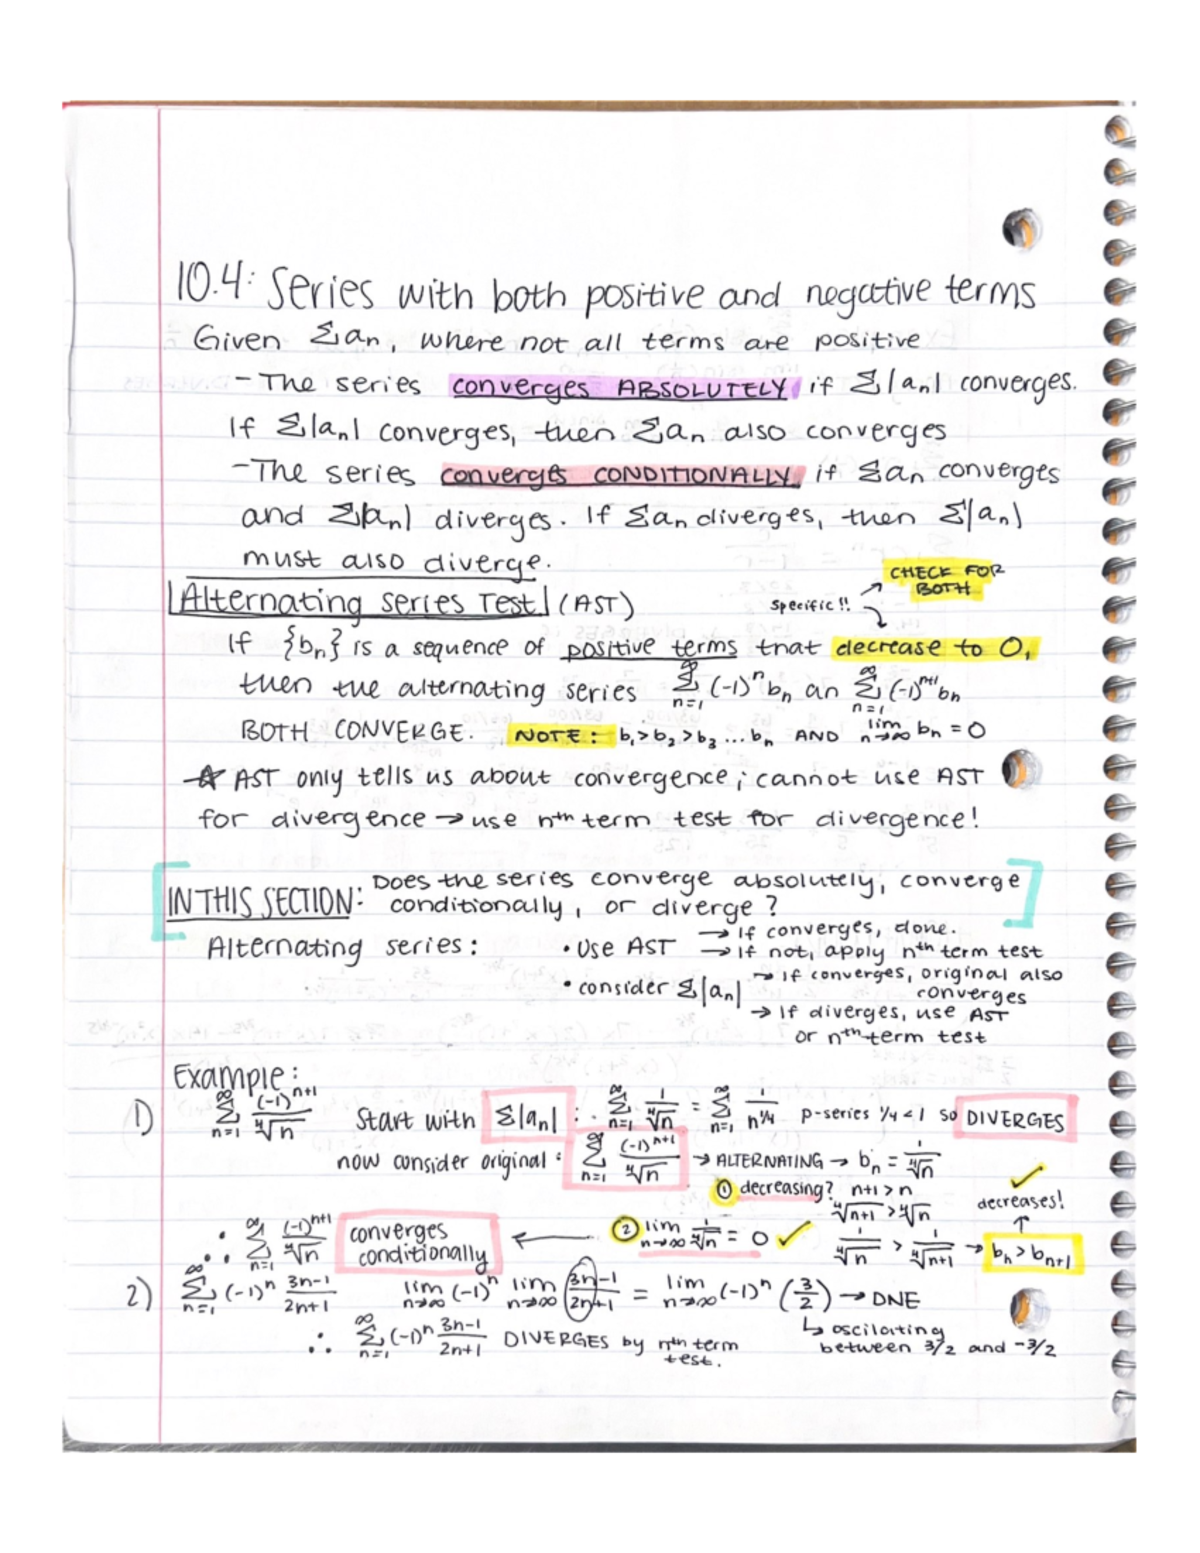 10.4: Series with both positive and negative terms
Given Σan, where not all terms are positive
- The series converges ABSOLUTELY if Σ|an| converges.
If Σ|an| converges, then Σan also converges
- The series converges CONDITIONALLY if Σan converges
and Σ|an| diverges. If Σan diverges, then Σ|an|
must also diverge.
CHECK FOR
BOTH
Alternating Series Test (AST)
specific!!
If {bn} is a sequence of positive terms that decrease to 0,
then the alternating series ∞Σn=1 (-1)^n bn an ∞Σn=1 (-1)^n+1 bn
BOTH CONVERGE. NOTE: b1 > b2 > b3 ... bn AND lim n→∞ bn = 0
☆ AST only tells us about convergence; cannot use AST
for divergence → use nth term test for divergence!
IN THIS SECTION: Does the series converge absolutely, converge
conditionally, or diverge?
Alternating series: • Use AST → if converges, done.
→ if not, apply nth term test
• consider Σ|an| → if converges, original also
converges
→ If diverges, use AST
or nth term test
Example:
1) ∞Σn=1 (-1)^n+1/⁴√n Start with Σ|an| : ∞Σn=1 1/⁴√n = ∞Σn=1 1/n^1/4 p-series 1/4 < 1 so DIVERGES
now consider original : ∞Σn=1 (-1)^n+1/⁴√n → ALTERNATING → bn = 1/⁴√n
① decreasing? n+1 > n
⁴√n+1 > ⁴√n
1/⁴√n > 1/⁴√n+1 → bn > bn+1
decreases! ✓
② lim n→∞ 1/⁴√n = 0 ✓
∴ ∞Σn=1 (-1)^n+1/⁴√n converges
conditionally
2) ∞Σn=1 (-1)^n 3n-1/2n+1 lim n→∞ (-1)^n lim n→∞ 3n-1/2n+1 = lim n→∞ (-1)^n (3/2) → DNE
↳ oscilating
between 3/2 and -3/2
∴ ∞Σn=1 (-1)^n 3n-1/2n+1 DIVERGES by nth term
test.